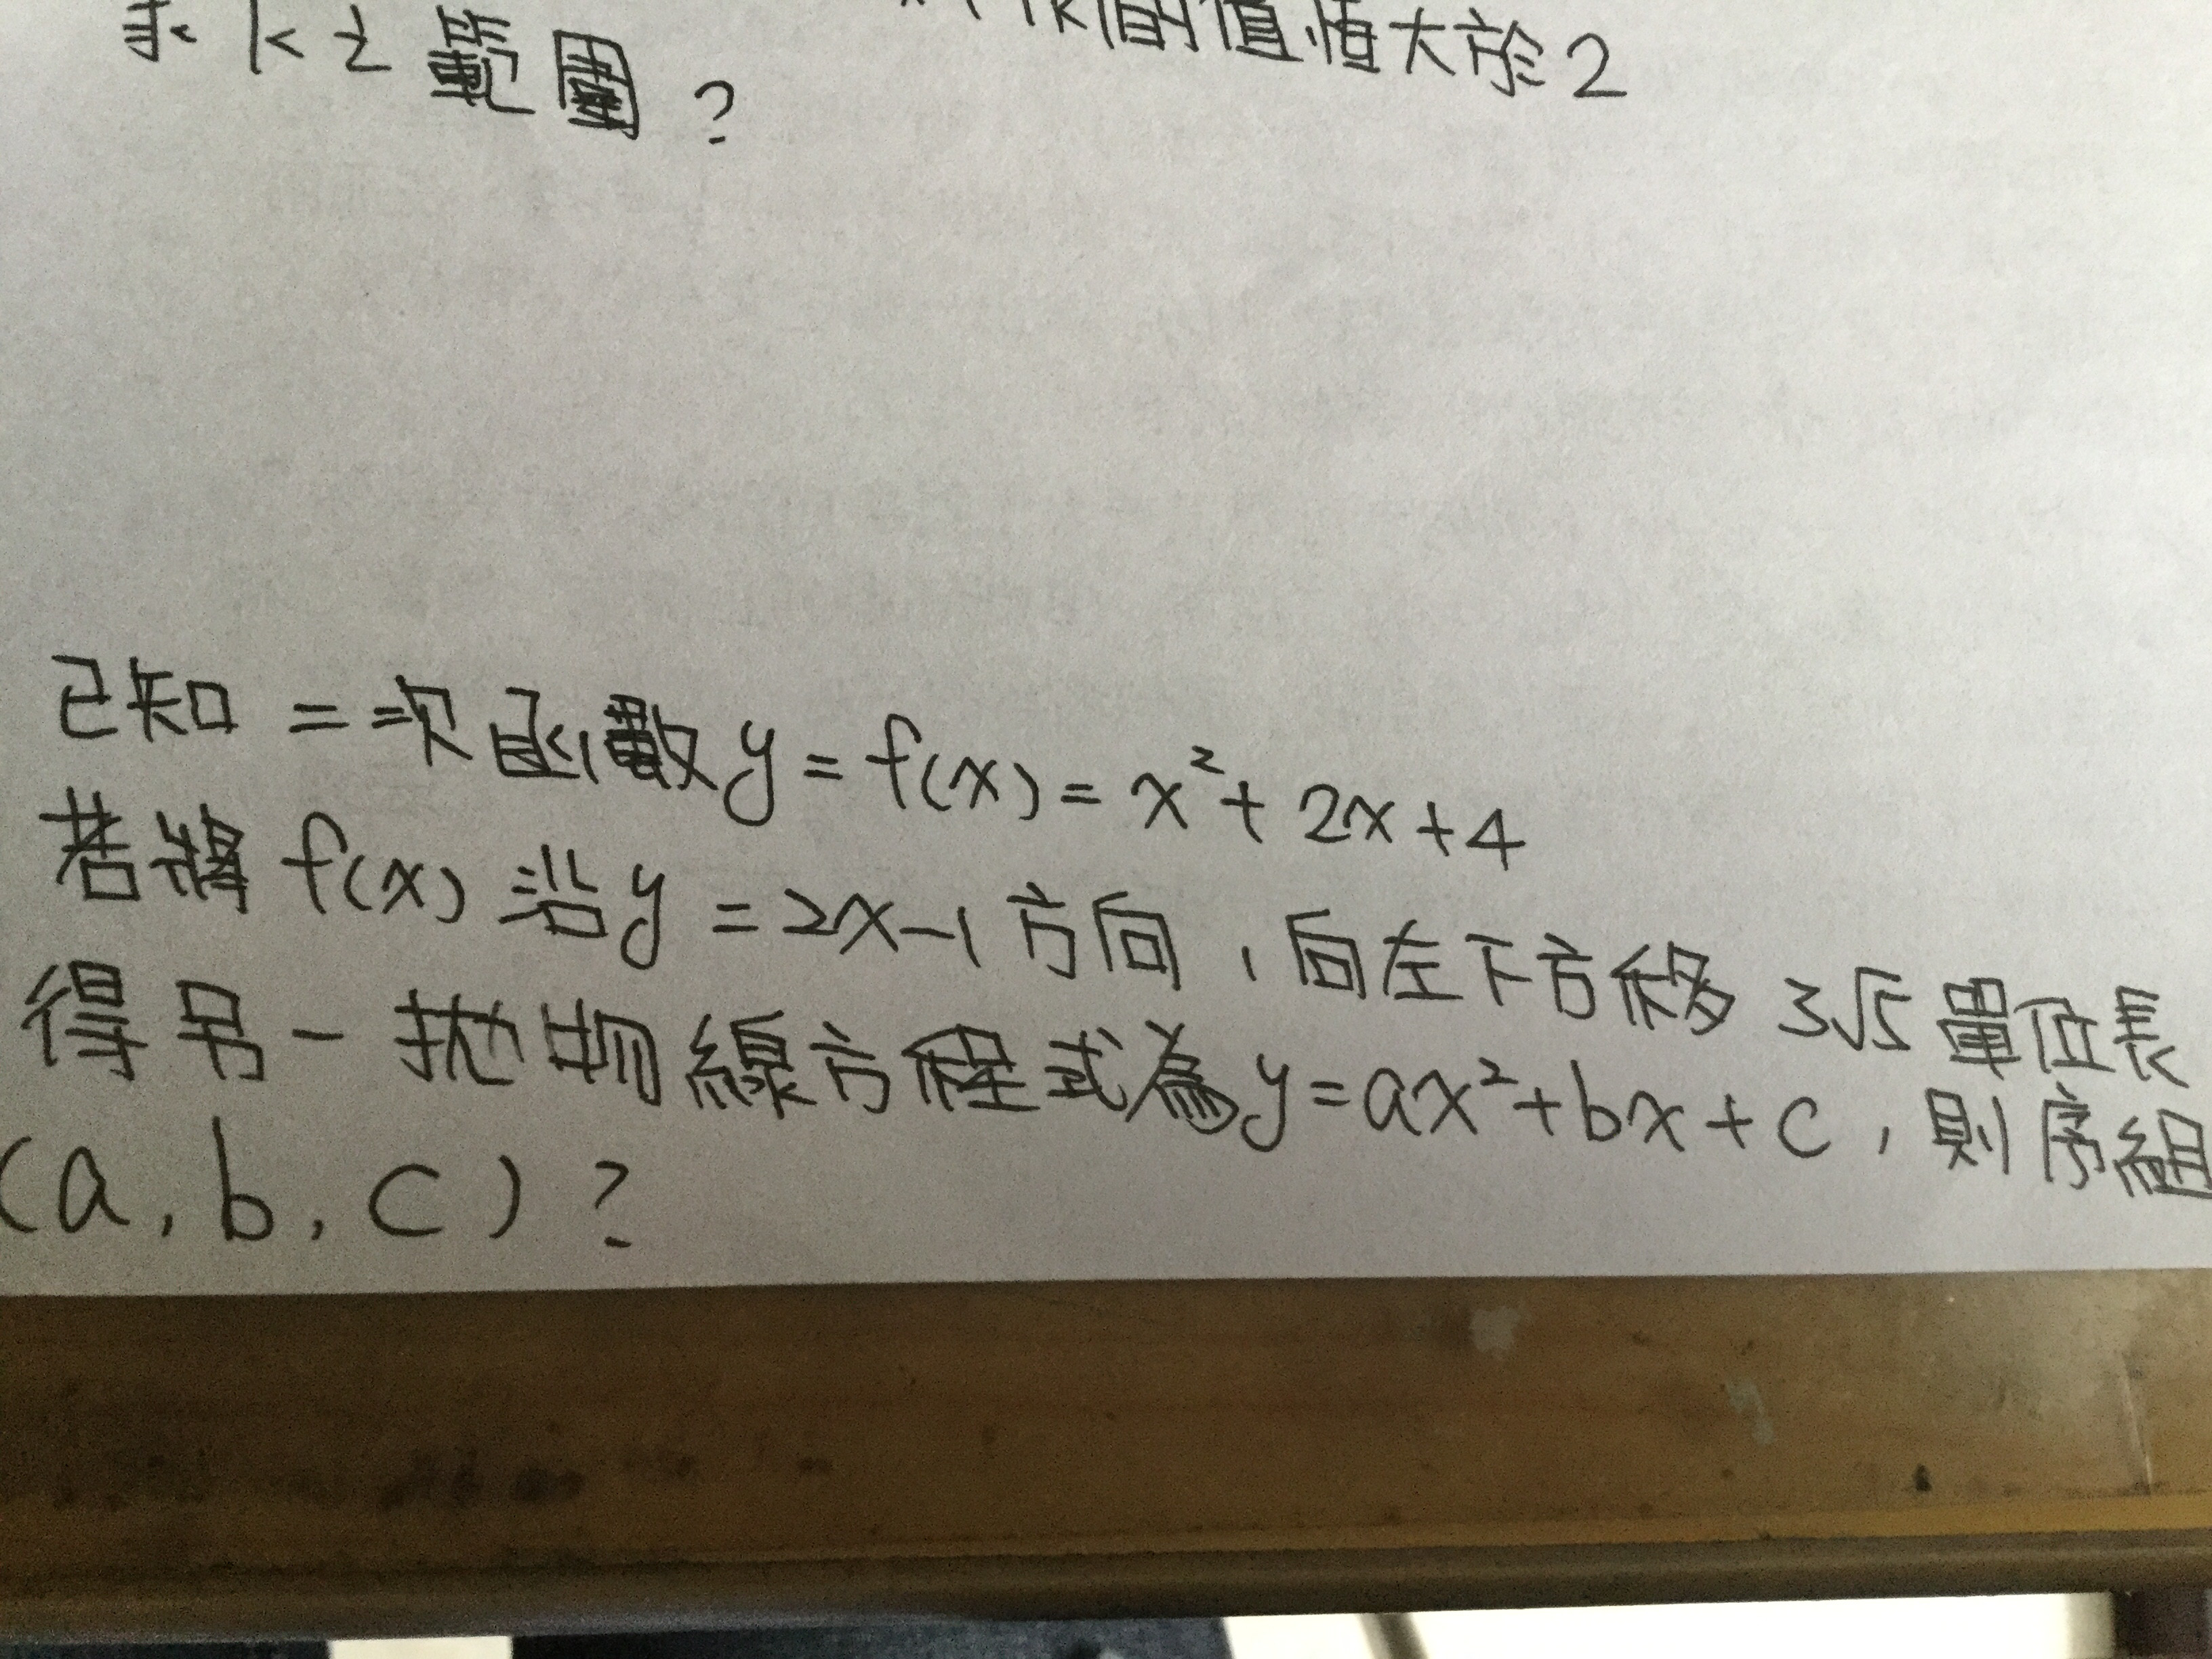 求k之範圍?
的值恆大於2
已知二次函數y=f(x)=x²+2x+4
若將f(x)沿y=2x-1方向,向左下方移3√5單位長
得另一拋物線方程式為y=ax²+bx+c,則序組
(a,b,c)?